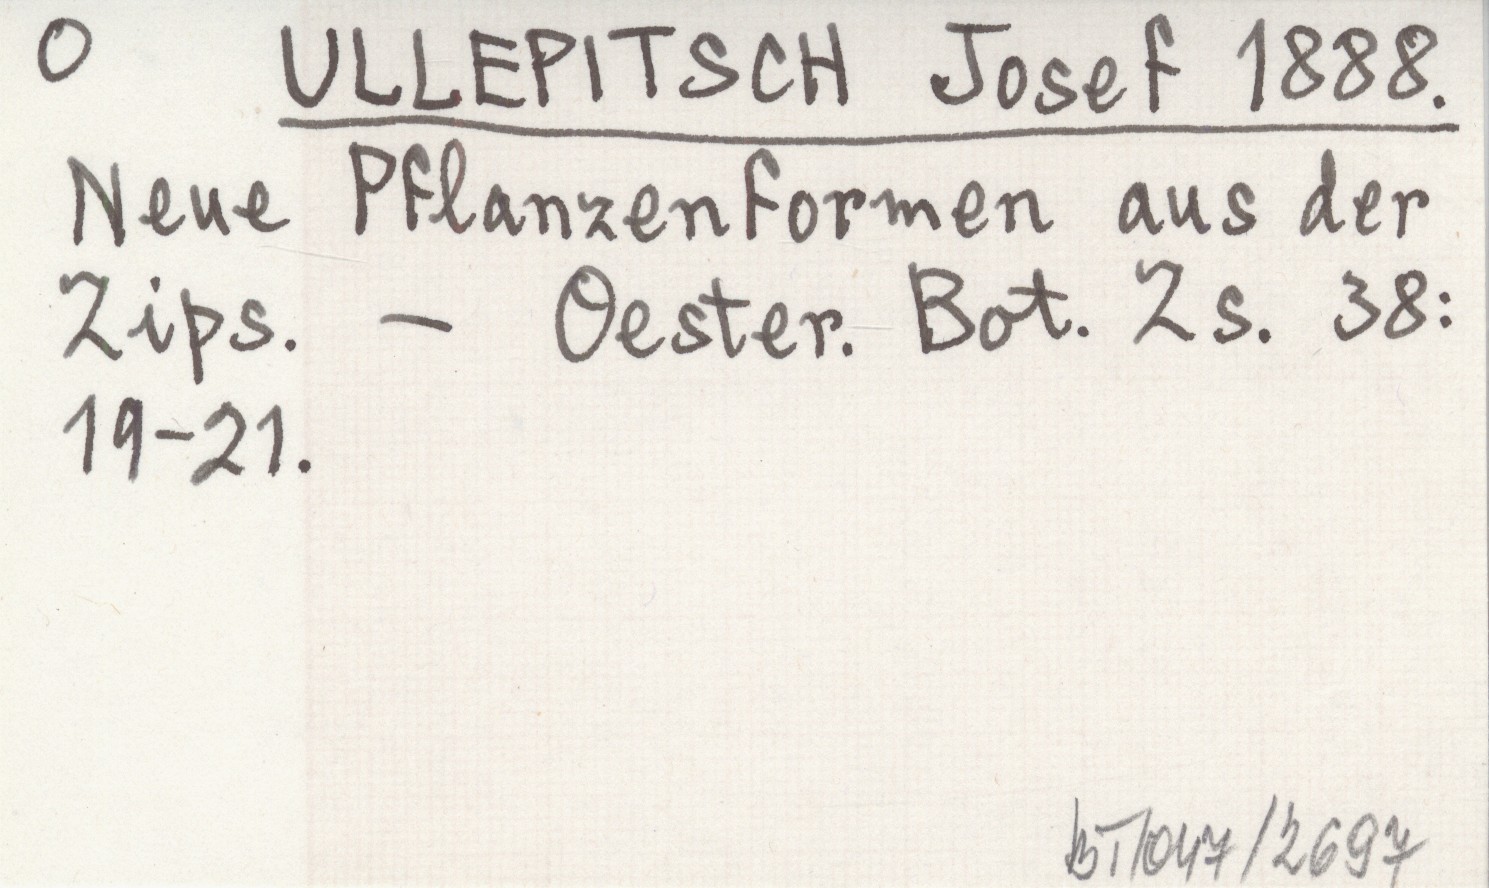 O ULLEPITSCH Josef 1888.
Neue Pflanzenformen aus der
Zips. – Oester. Bot. Zs. 38:
19-21.
BT/047/2697